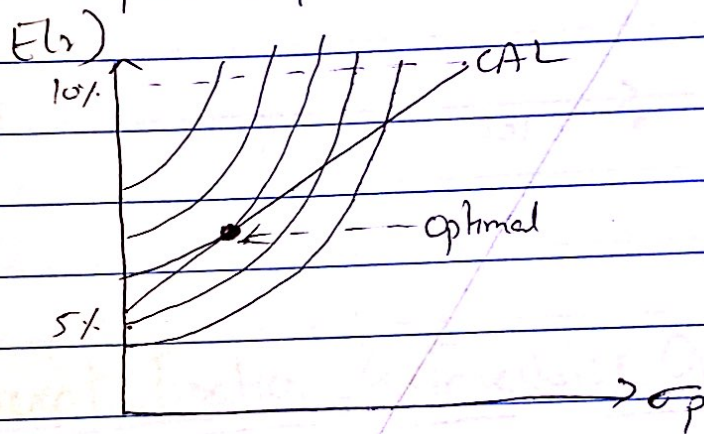 E(r)
10%
CAL
optimal
5%
σp